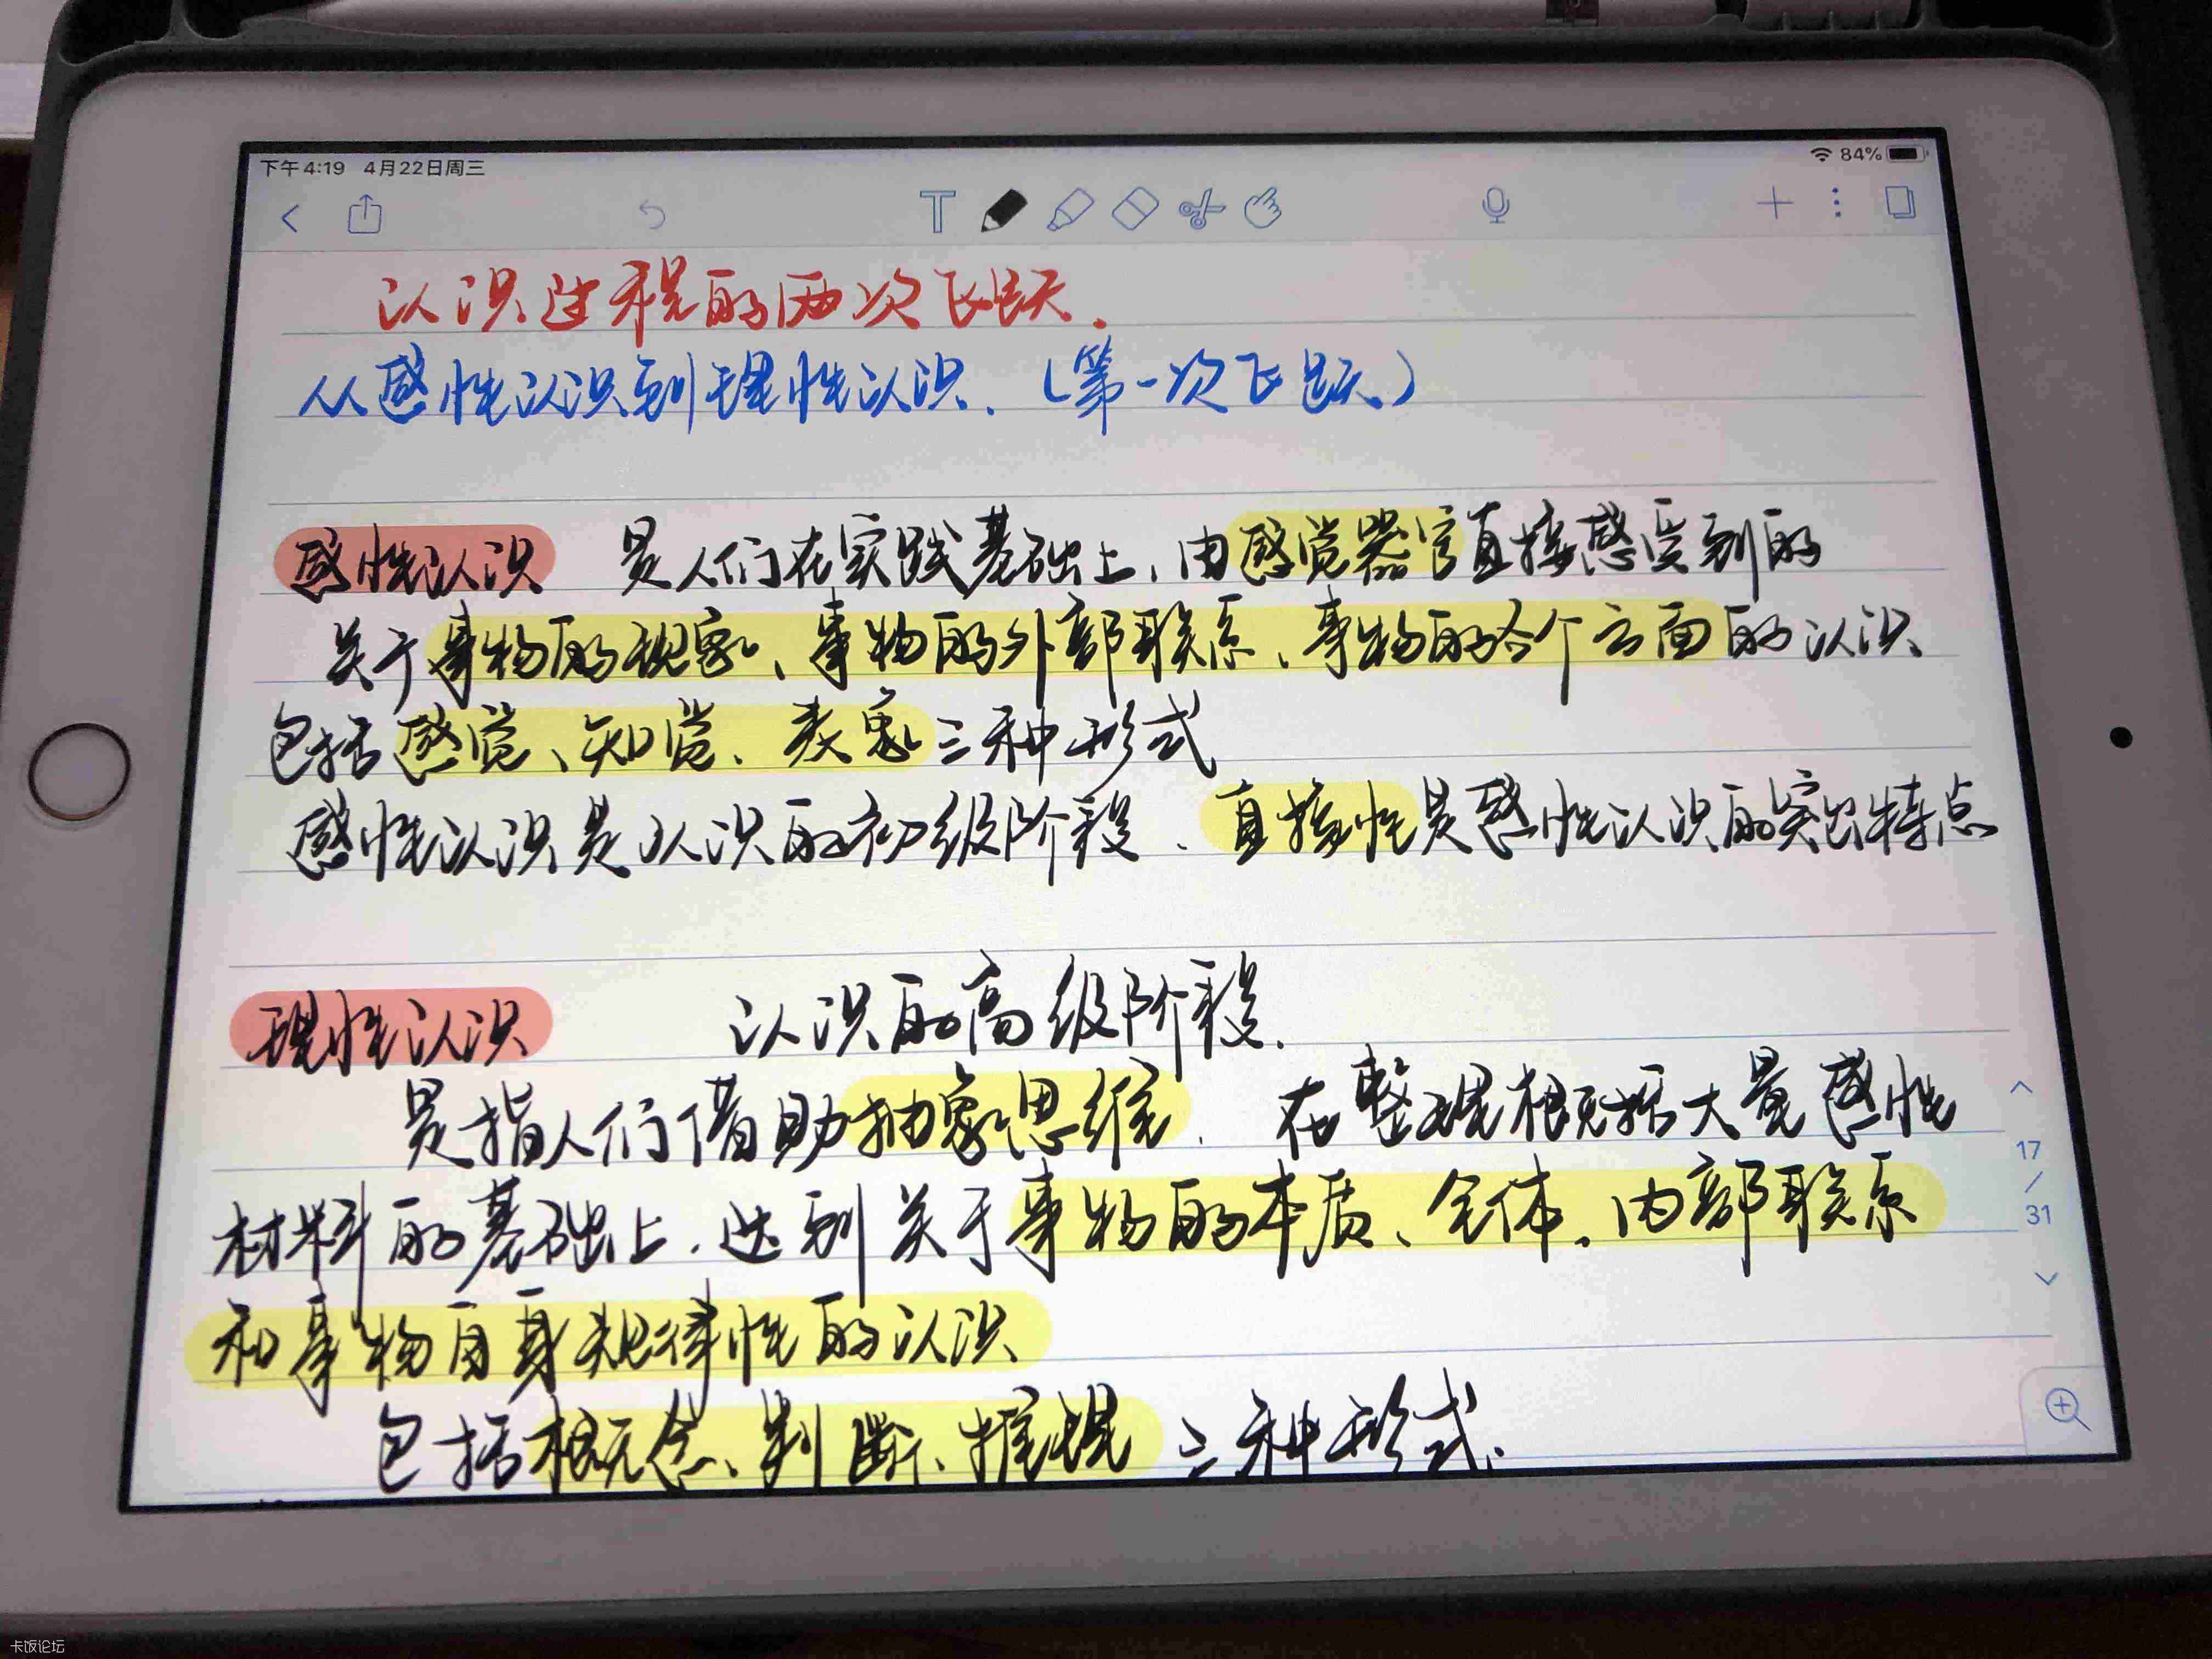 下午4:19 4月22日周三
84%
T
认识过程的两次飞跃.
从感性认识到理性认识.(第一次飞跃)
感性认识 是人们在实践基础上,由感觉器官直接感受到的
关于事物的现象、事物的外部联系、事物的各个方面的认识
包括感觉、知觉、表象三种形式
感性认识是认识的初级阶段、直接性是感性认识的突出特点
理性认识 认识的高级阶段.
是指人们借助抽象思维、在整理概括大量感性
材料的基础上,达到关于事物的本质、全体、内部联系
和事物自身规律性的认识
包括概念、判断、推理三种形式.
17
/
31
卡饭论坛